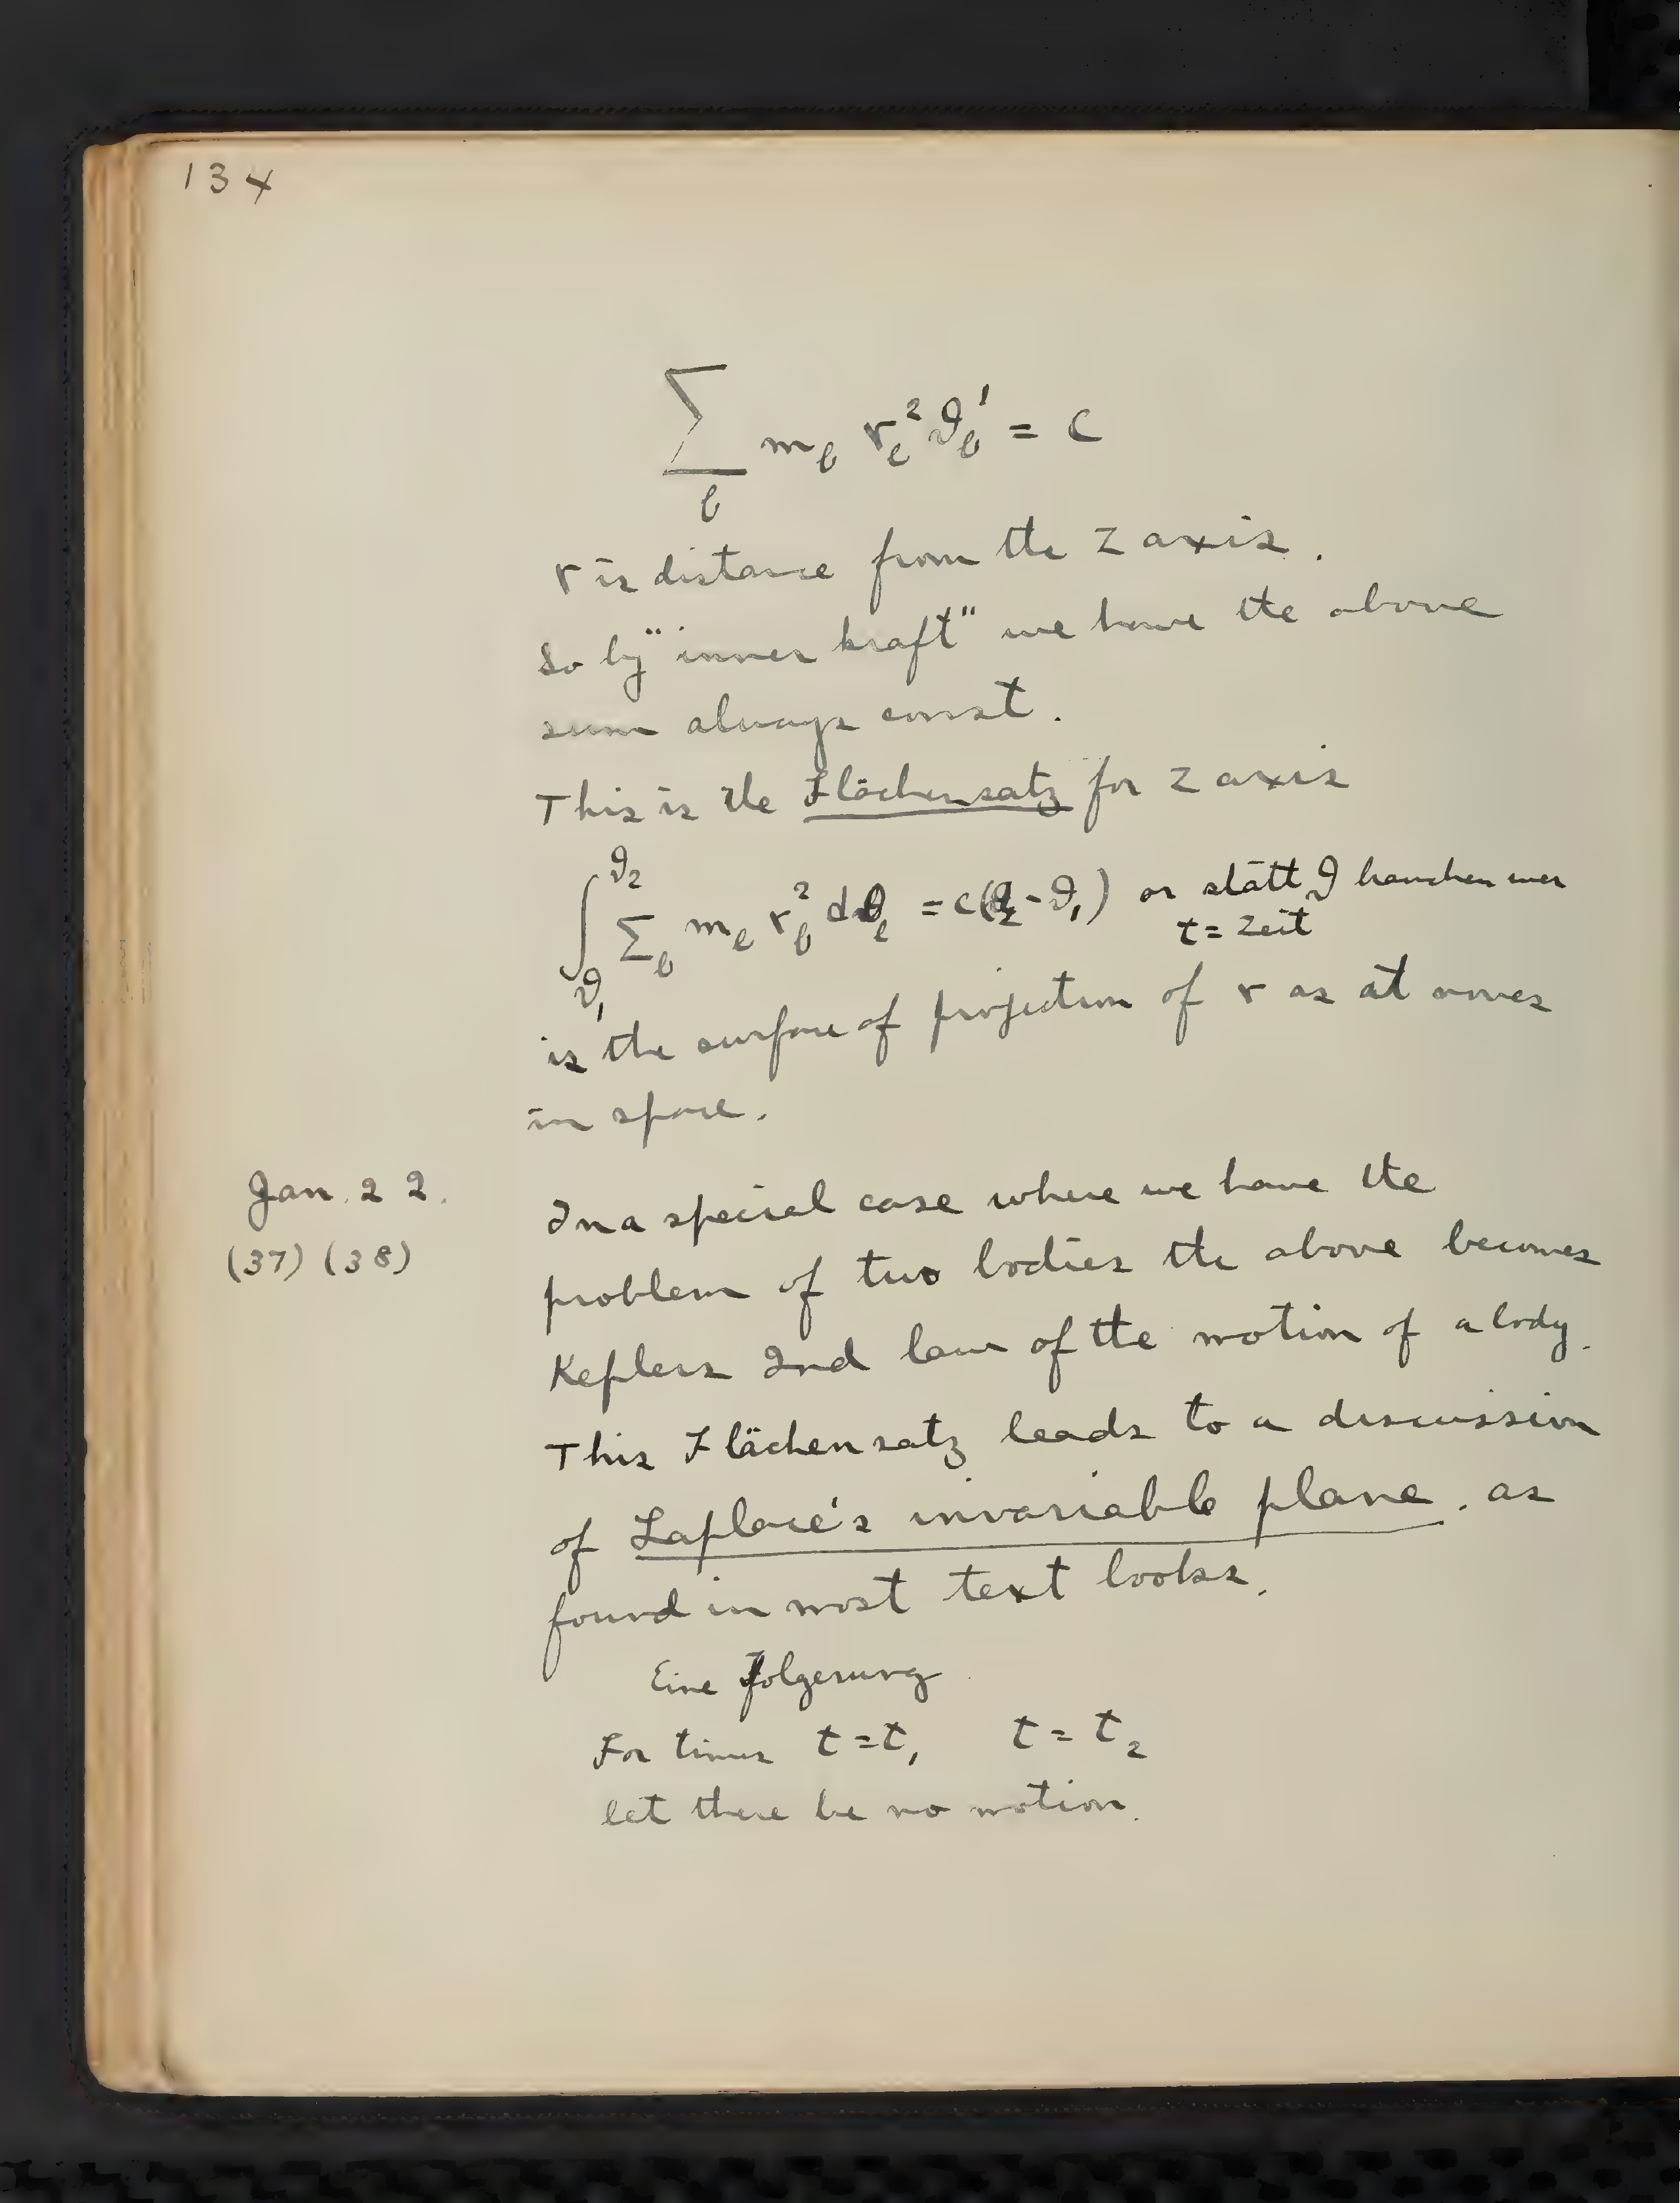 134
∑_l m_l r_l² ϑ_l' = c
r is distance from the Z axis.
So by "inner kraft" we have the above
sum always const.
This is the Flächensatz for Z axis
∫_{ϑ₁}^{ϑ₂} ∑_l m_l r_l² dϑ_l = c(ϑ₂ - ϑ₁) or statt ϑ brauchen wir
t = Zeit
is the surface of projection of r as it moves
in space.
Jan. 22.
(37) (38)
In a special case where we have the
problem of two bodies the above becomes
Keplers 2nd law of the motion of a body.
This Flächensatz leads to a discussion
of Laplace's invariable plane, as
found in most text books.
Eine Folgerung
For times t = t₁ t = t₂
let there be no motion.